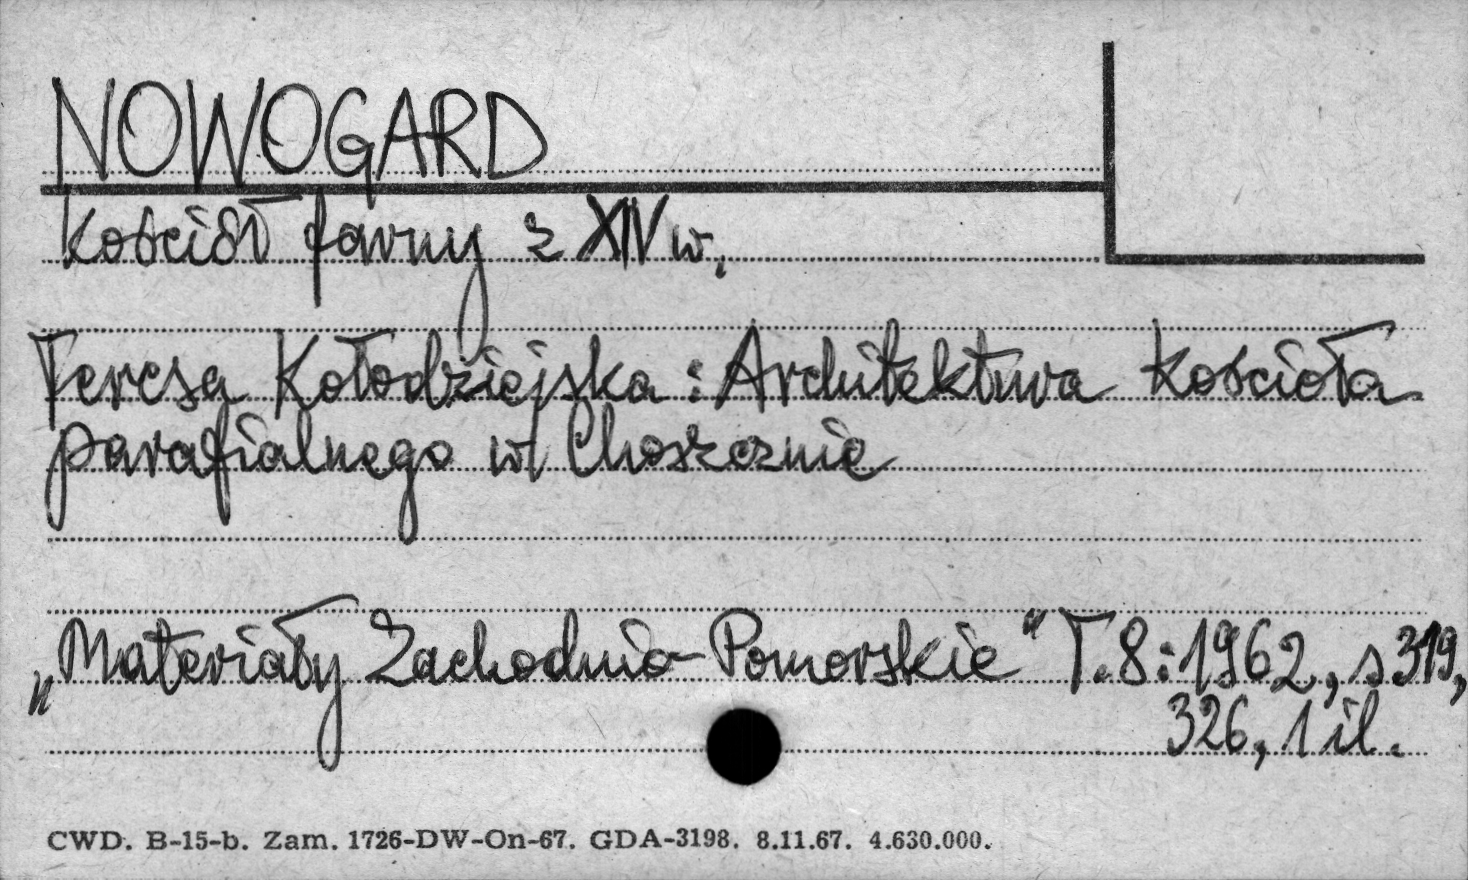 NOWOGARD
Kościół farny z XIV w.
Teresa Kołodziejska : Architektura kościoła
parafialnego w Choszcznie
„Materiały Zachodnio-Pomorskie" T.8:1962, s 319,
326, 1 il.
CWD. B-15-b. Zam. 1726-DW-On-67. GDA-3198. 8.11.67. 4.630.000.